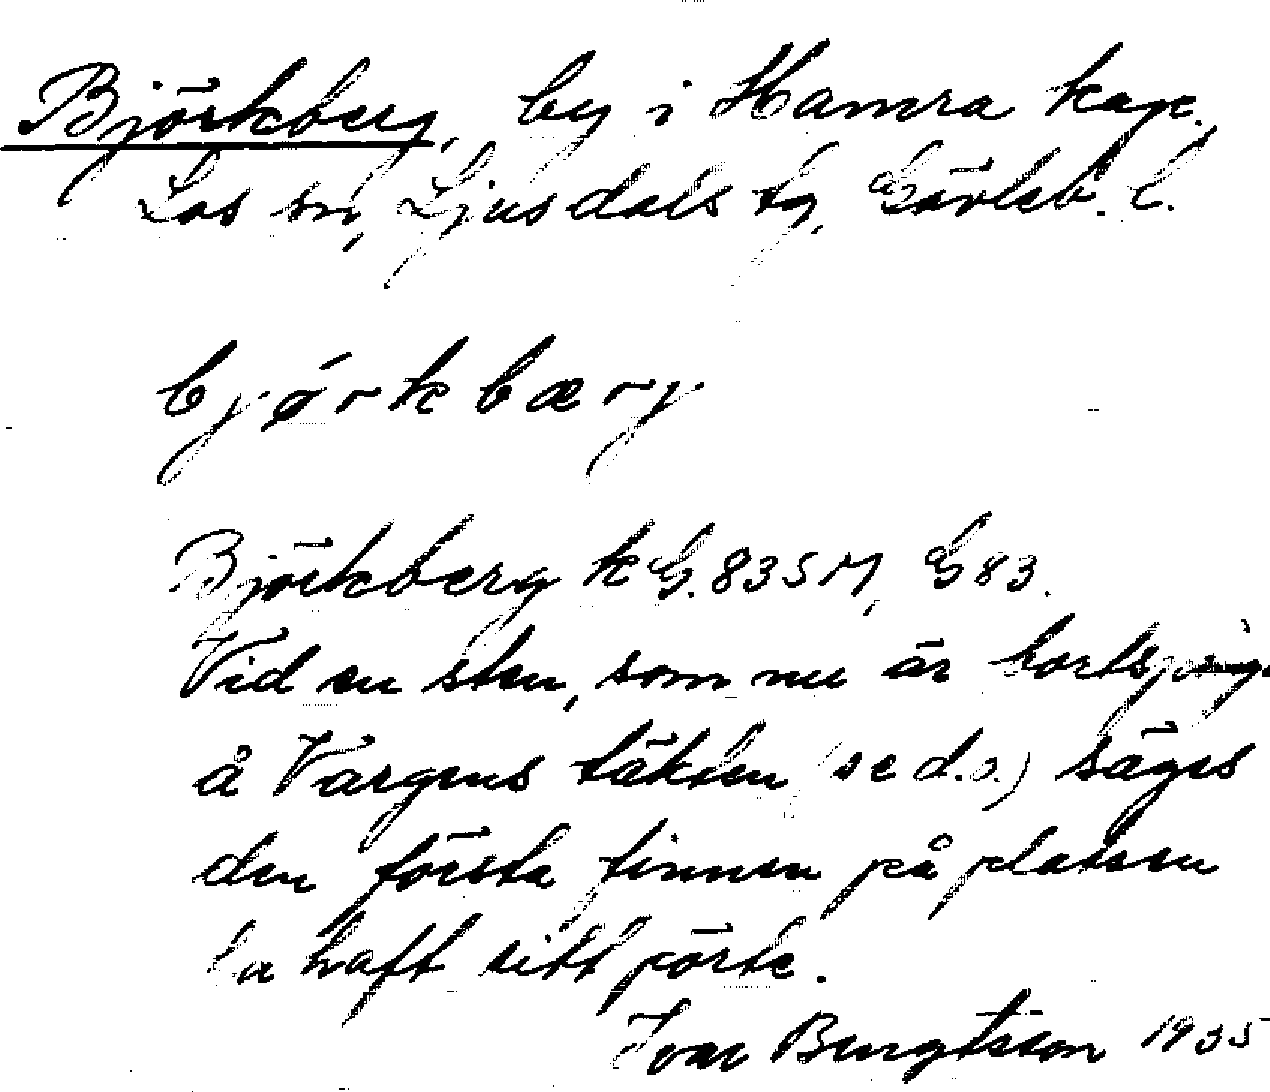 Björkberg, by i Hamra kap.,
Los sn, Ljusdals tg, Gävleb. l.
bjørkbærj
Björkberg k G. 83 SM, G 83.
Vid en sten, som nu är bortsprängd
å Vargens täkten (se d.o.) säges
den första finnen på platsen
ha haft sitt pörte.
Ivar Bengtsson 1935